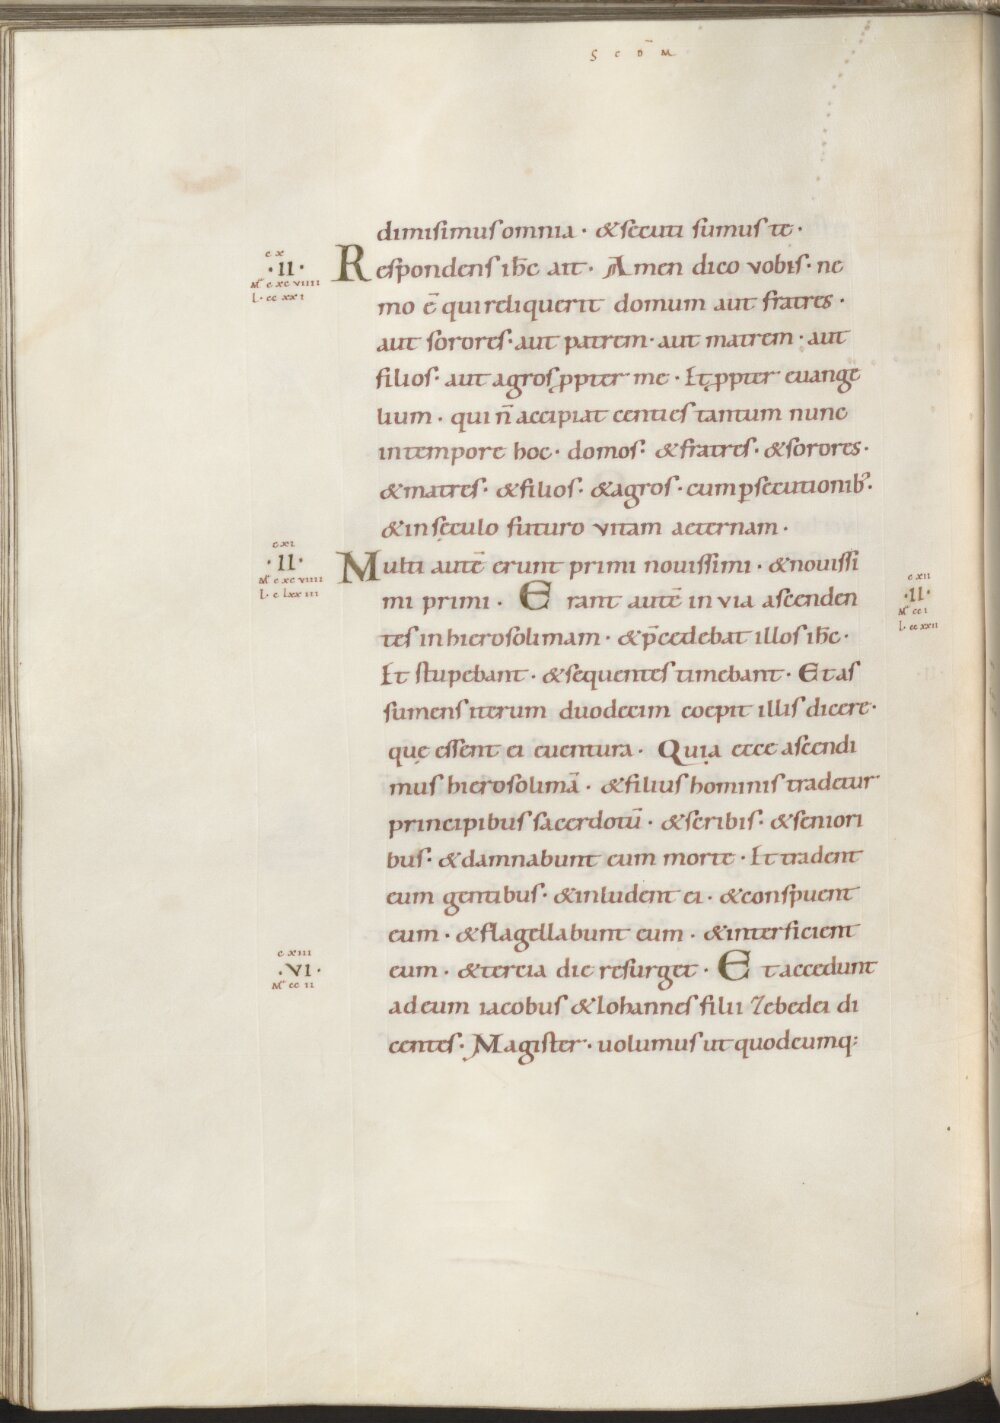 S c D̄ M
dimisimus omnia · & secuti sumus te ·
c x
· II ·
Mͬ c xc viiii
L · cc xx i
Respondens ih̄c ait · Amen dico vobis · ne
mo ē qui reliquerit domum aut fratres ·
aut sorores · aut patrem · aut matrem · aut
filios · aut agros ꝓpter me · Et ꝓpter euange
lium · qui n̄ accipiat centies tantum nunc
in tempore hoc · domos · & fratres · & sorores ·
& matres · & filios · & agros · cum ꝑsecutionib; ·
& in sęculo futuro vitam aeternam ·
c xi
· II ·
Mͬ c xc viiii
L · c lxx iii
Multi autē erunt primi nouissimi · & nouissi
mi primi · Erant autē in via ascenden
c xii
· II ·
Mͬ cc i
L · cc xxii
tes in hierosolimam · & p̄cedebat illos ih̄c ·
Et stupebant · & sequentes timebant · Et as
sumens iterum duodecim coepit illis dicere ·
quę essent ei euentura · Quia ecce ascendi
mus hierosolimā · & filius hominis tradetur
principibus sacerdotū · & scribis · & seniori
bus · & damnabunt eum morte · Et tradent
eum gentibus · & inludent ei · & conspuent
eum · & flagellabunt eum · & interficient
c xiii
· VI ·
Mͬ cc ii
eum · & tercia die resurget · Et accedunt
ad eum iacobus & Iohannes filii Zebedei di
centes · Magister · uolumus ut quodcumq;